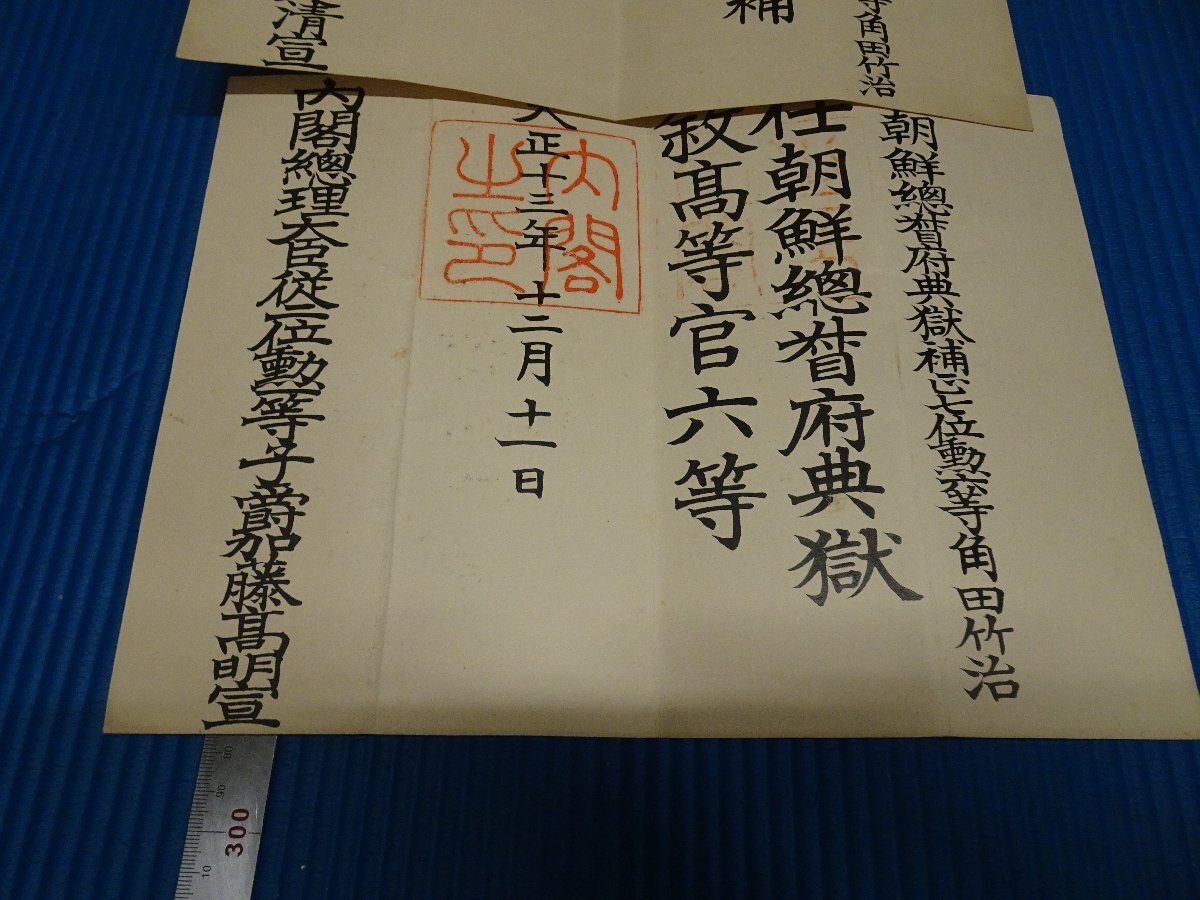 等角田竹治
補
清宣
朝鮮總督府典獄補正七位勳六等角田竹治
任朝鮮總督府典獄
敘高等官六等
大正十三年十二月十一日
內閣之印
內閣總理大臣從二位勳一等子爵加藤高明宣
80
90
300
10